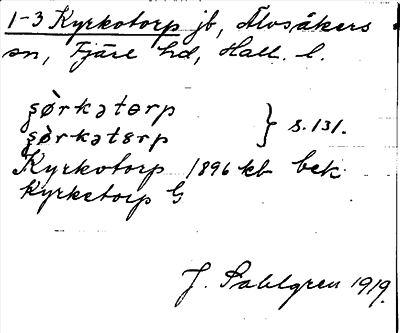 1-3 Kyrkotorp jb, Älvsåkers
sn, Fjäre hd, Hall. l.
ʂørkətorp } s. 131.
ʂørkətɛrp
Kyrkotorp 1896 kb bek
Kyrketorp G
J. Sahlgren 1919.